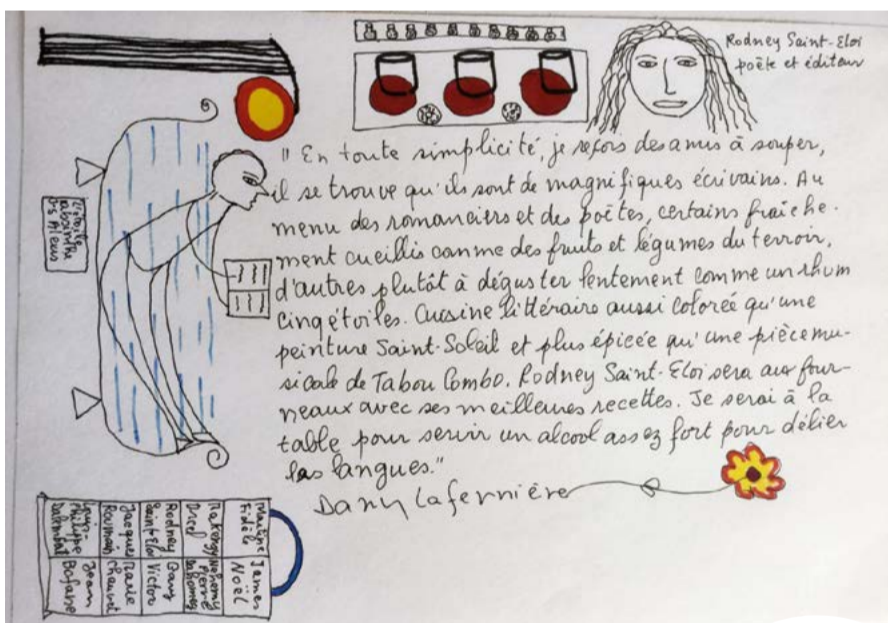 Rodney Saint-Eloi
poète et éditeur
" En toute simplicité, je reçois des amis à souper,
il se trouve qu'ils sont de magnifiques écrivains. Au
menu des romanciers et des poètes, certains fraîche-
ment cueillis comme des fruits et légumes du terroir,
d'autres plutôt à déguster lentement comme un rhum
cinq étoiles. Cuisine littéraire aussi colorée qu'une
peinture Saint-Soleil et plus épicée qu'une pièce mu-
sicale de Tabou Combo. Rodney Saint-Eloi sera aux four-
neaux avec ses meilleures recettes. Je serai à la
table pour servir un alcool assez fort pour délier
les langues."
Dany Laferrière
absinthe
Martine
Fidèle
James
Noël
Rodney
Saint-Eloi
Gary
Victor
Jacques
Roumain
Marie
Chauvet
Louis-
Philippe
Dalembert
Jean
Bofane